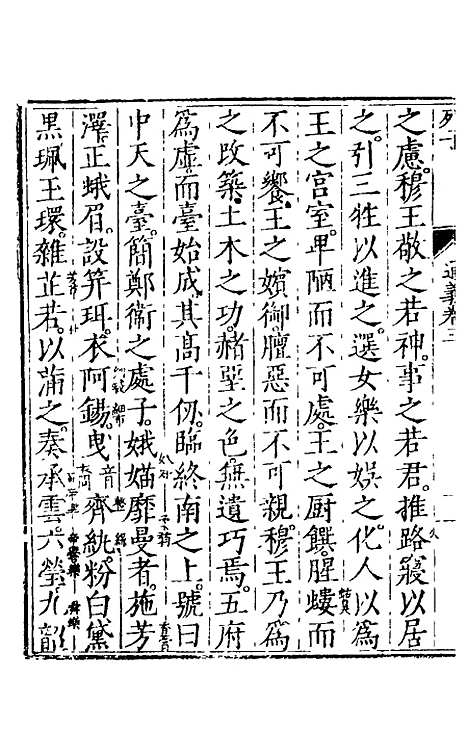 之慮。穆王敬之若神。事之若君。推路寢以居
之。引三牲以進之。選女樂以娛之。化人以爲
王之宫室。卑陋而不可處。王之厨饌。腥螻而
不可饗。王之嬪御。膻惡而不可親。穆王乃爲
之改築。土木之功。赭堊之色。無遺巧焉。五府
爲虛。而臺始成。其髙千仞。臨終南之上。號曰
中天之臺。簡鄭衞之處子。娥媌靡曼者。施芳
澤。正蛾眉。設笄珥。衣阿錫。曳齊紈。粉白黛
黑。珮玉環。雜芷若。以滿之。奏承雲六瑩。九韶